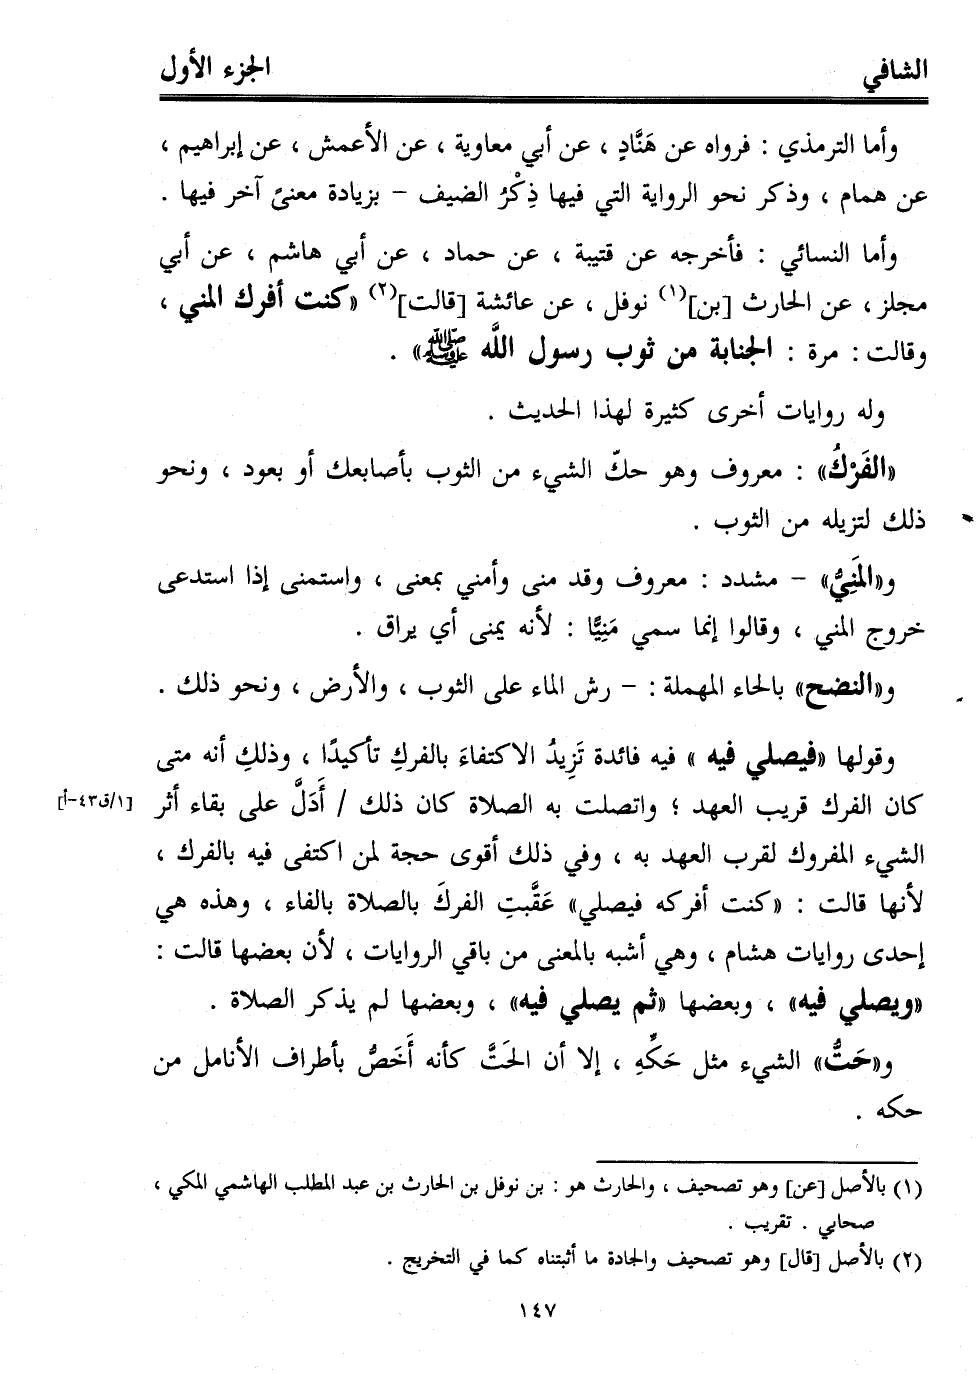 الشافي
الجزء الأول
وأما الترمذي : فرواه عن هَنَّادٍ ، عن أبي معاوية ، عن الأعمش ، عن إبراهيم ،
عن همام ، وذكر نحو الرواية التي فيها ذِكْرُ الضيف – بزيادة معنىً آخر فيها .
وأما النسائي : فأخرجه عن قتيبة ، عن حماد ، عن أبي هاشم ، عن أبي
مجلز ، عن الحارث [بن](١) نوفل ، عن عائشة [قالت](٢) «كنت أفرك المني ،
وقالت : مرة : الجنابة من ثوب رسول اللَّه ﷺ» .
وله روايات أخرى كثيرة لهذا الحديث .
«الفَرْكُ» : معروف وهو حكّ الشيء من الثوب بأصابعك أو بعود ، ونحو
ذلك لتزيله من الثوب .
و«المَنِيُّ» – مشدد : معروف وقد منى وأمني بمعنى ، واستمنى إذا استدعى
خروج المني ، وقالوا إنما سمي مَنِيًّا : لأنه يمنى أي يراق .
و«النضح» بالحاء المهملة : – رش الماء على الثوب ، والأرض ، ونحو ذلك .
وقولها «فيصلي فيه » فيه فائدة تَزِيدُ الاكتفاءَ بالفركِ تأكيدًا ، وذلك أنه متى
كان الفرك قريب العهد ؛ واتصلت به الصلاة كان ذلك / أَدَلَّ على بقاء أثر
[١/ق٤٣-أ]
الشيء المفروك لقرب العهد به ، وفي ذلك أقوى حجة لمن اكتفى فيه بالفرك ،
لأنها قالت : «كنت أفركه فيصلي» عَقَّبتِ الفركَ بالصلاة بالفاء ، وهذه هي
إحدى روايات هشام ، وهي أشبه بالمعنى من باقي الروايات ، لأن بعضها قالت :
«ويصلي فيه» ، وبعضها «ثم يصلي فيه» ، وبعضها لم يذكر الصلاة .
و«حَتُّ» الشيء مثل حَكِّهِ ، إلا أن الحَتَّ كأنه أَخَصُّ بأطراف الأنامل من
حكه .
(١) بالأصل [عن] وهو تصحيف ، والحارث هو : بن نوفل بن الحارث بن عبد المطلب الهاشمي المكي ،
صحابي . تقريب .
(٢) بالأصل [قال] وهو تصحيف والجادة ما أثبتناه كما في التخريج .
١٤٧